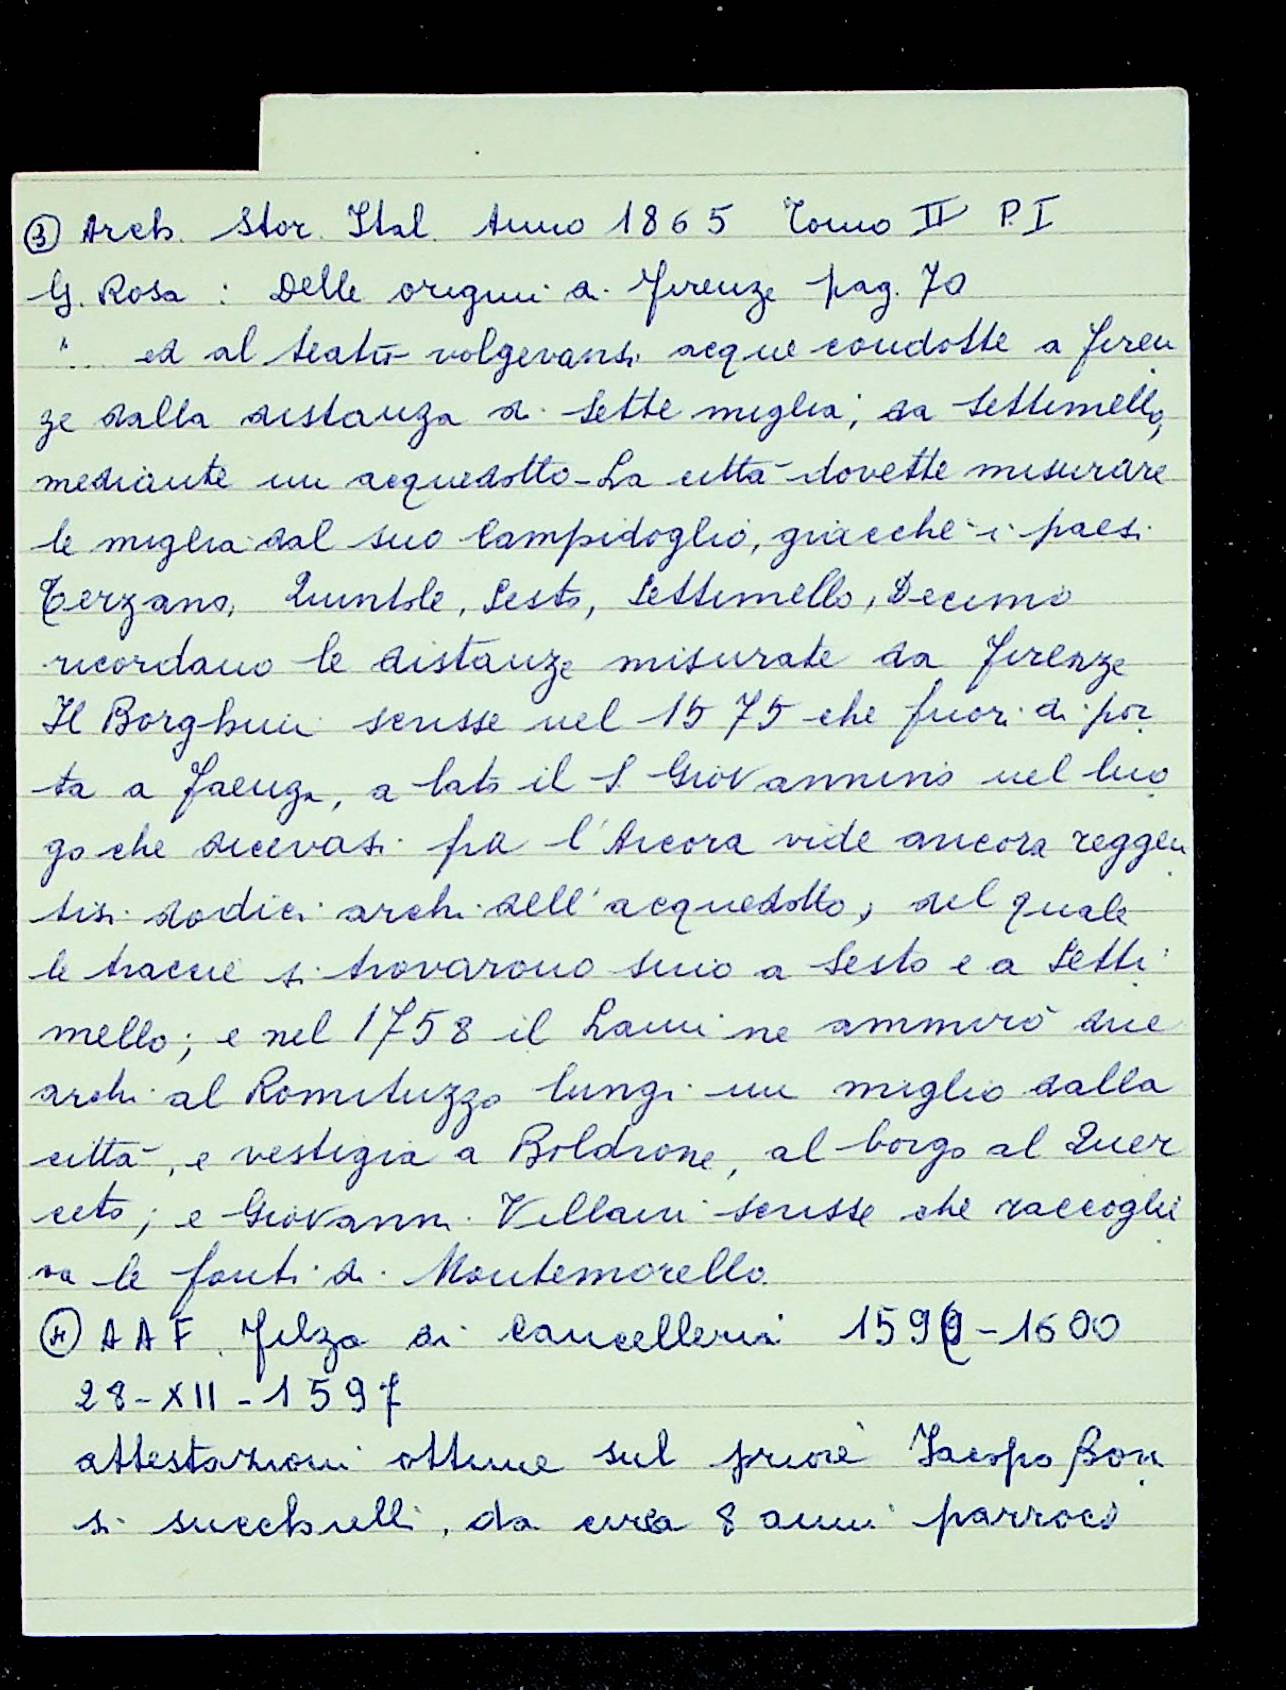 ③ Arch. Stor. Ital. Anno 1865 Tomo II P. I
G. Rosa : Delle origini di Firenze pag. 70
"... ed al teatro volgevansi acque condotte a Firen
ze dalla distanza di sette miglia; da Settimello,
mediante un acquedotto - La città dovette misurare
le miglia dal suo Campidoglio, giacchè i paesi
Terzano, Quintole, Sesto, Settimello, Decimo
ricordano le distanze misurate da Firenze
Il Borghini scrisse nel 1575 che fuori di por
ta a Faenza, a lato il S. Giovannino nel luo
go che dicevasi fra l'Arcora vide ancora reggen
tisi dodici archi dell'acquedotto, del quale
le traccie si trovarono sino a Sesto e a Setti
mello; e nel 1758 il Lami ne ammirò due
archi al Romituzzo lungi un miglio dalla
città, e vestigia a Boldrone, al borgo al Quer
ceto; e Giovanni Villani scrisse che raccoglie
va le fonti di Montemorello.
④ A A F. Filza di Cancelleria 1599-1600
28-XII-1597
attestazioni ottime sul priore Jacopo
si succhielli, da circa 8 anni parroco